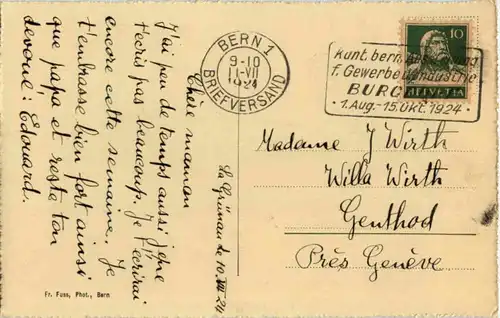 La Grünau le 10. VII 24
Chère maman
J'ai peu de temps aussi je ne
t'écris pas beaucoup. Je t'écrirai
encore cette semaine. Je
t'embrasse bien fort ainsi
que papa et reste ton
dévoué: Edouard.
Fr. Fuss, Phot., Bern
BERN 1
9-10
11·VII
1924
BRIEFVERSAND
Kant. bern.
f. Gewerbe Industrie
BURG
·1.Aug.-15.Okt.1924·
10
HELVETIA
Madame J Wirth
Willa Wirth
Genthod
Près Genève